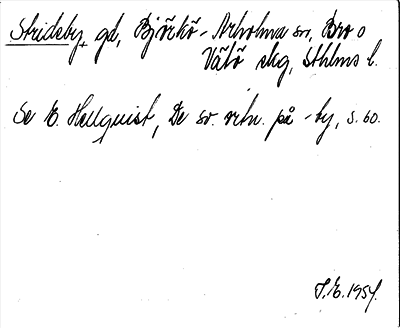 Strideby, gd, Björkö-Arholma sn, Bro o
Vätö skg, Sthlms l.
Se E. Hellquist, De sv. ortn. på -by, s. 60.
S.E. 1954.